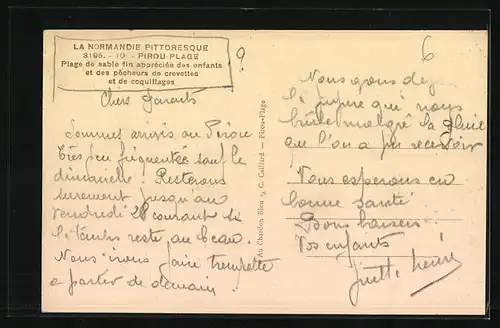 LA NORMANDIE PITTORESQUE
3195. - 10 - PIROU-PLAGE
Plage de sable fin appréciée des enfants
et des pêcheurs de crevettes
et de coquillages
9
6
Chers parents
Sommes arrivés au Pirou
très peu fréquentée sauf le
dimanche. Resterons
surement jusqu'au
vendredi 28 courant si
le temps reste au beau.
Nous irons faire trempette
a partir de demain.
Au Chardon Bleu, C. Caillard — Pirou-Plage
Nous avons
qui nous
brûle malgré la pluie
que l'on a pu recevoir
Vous esperons en
bonne santé
Bons baisers
Vos enfants